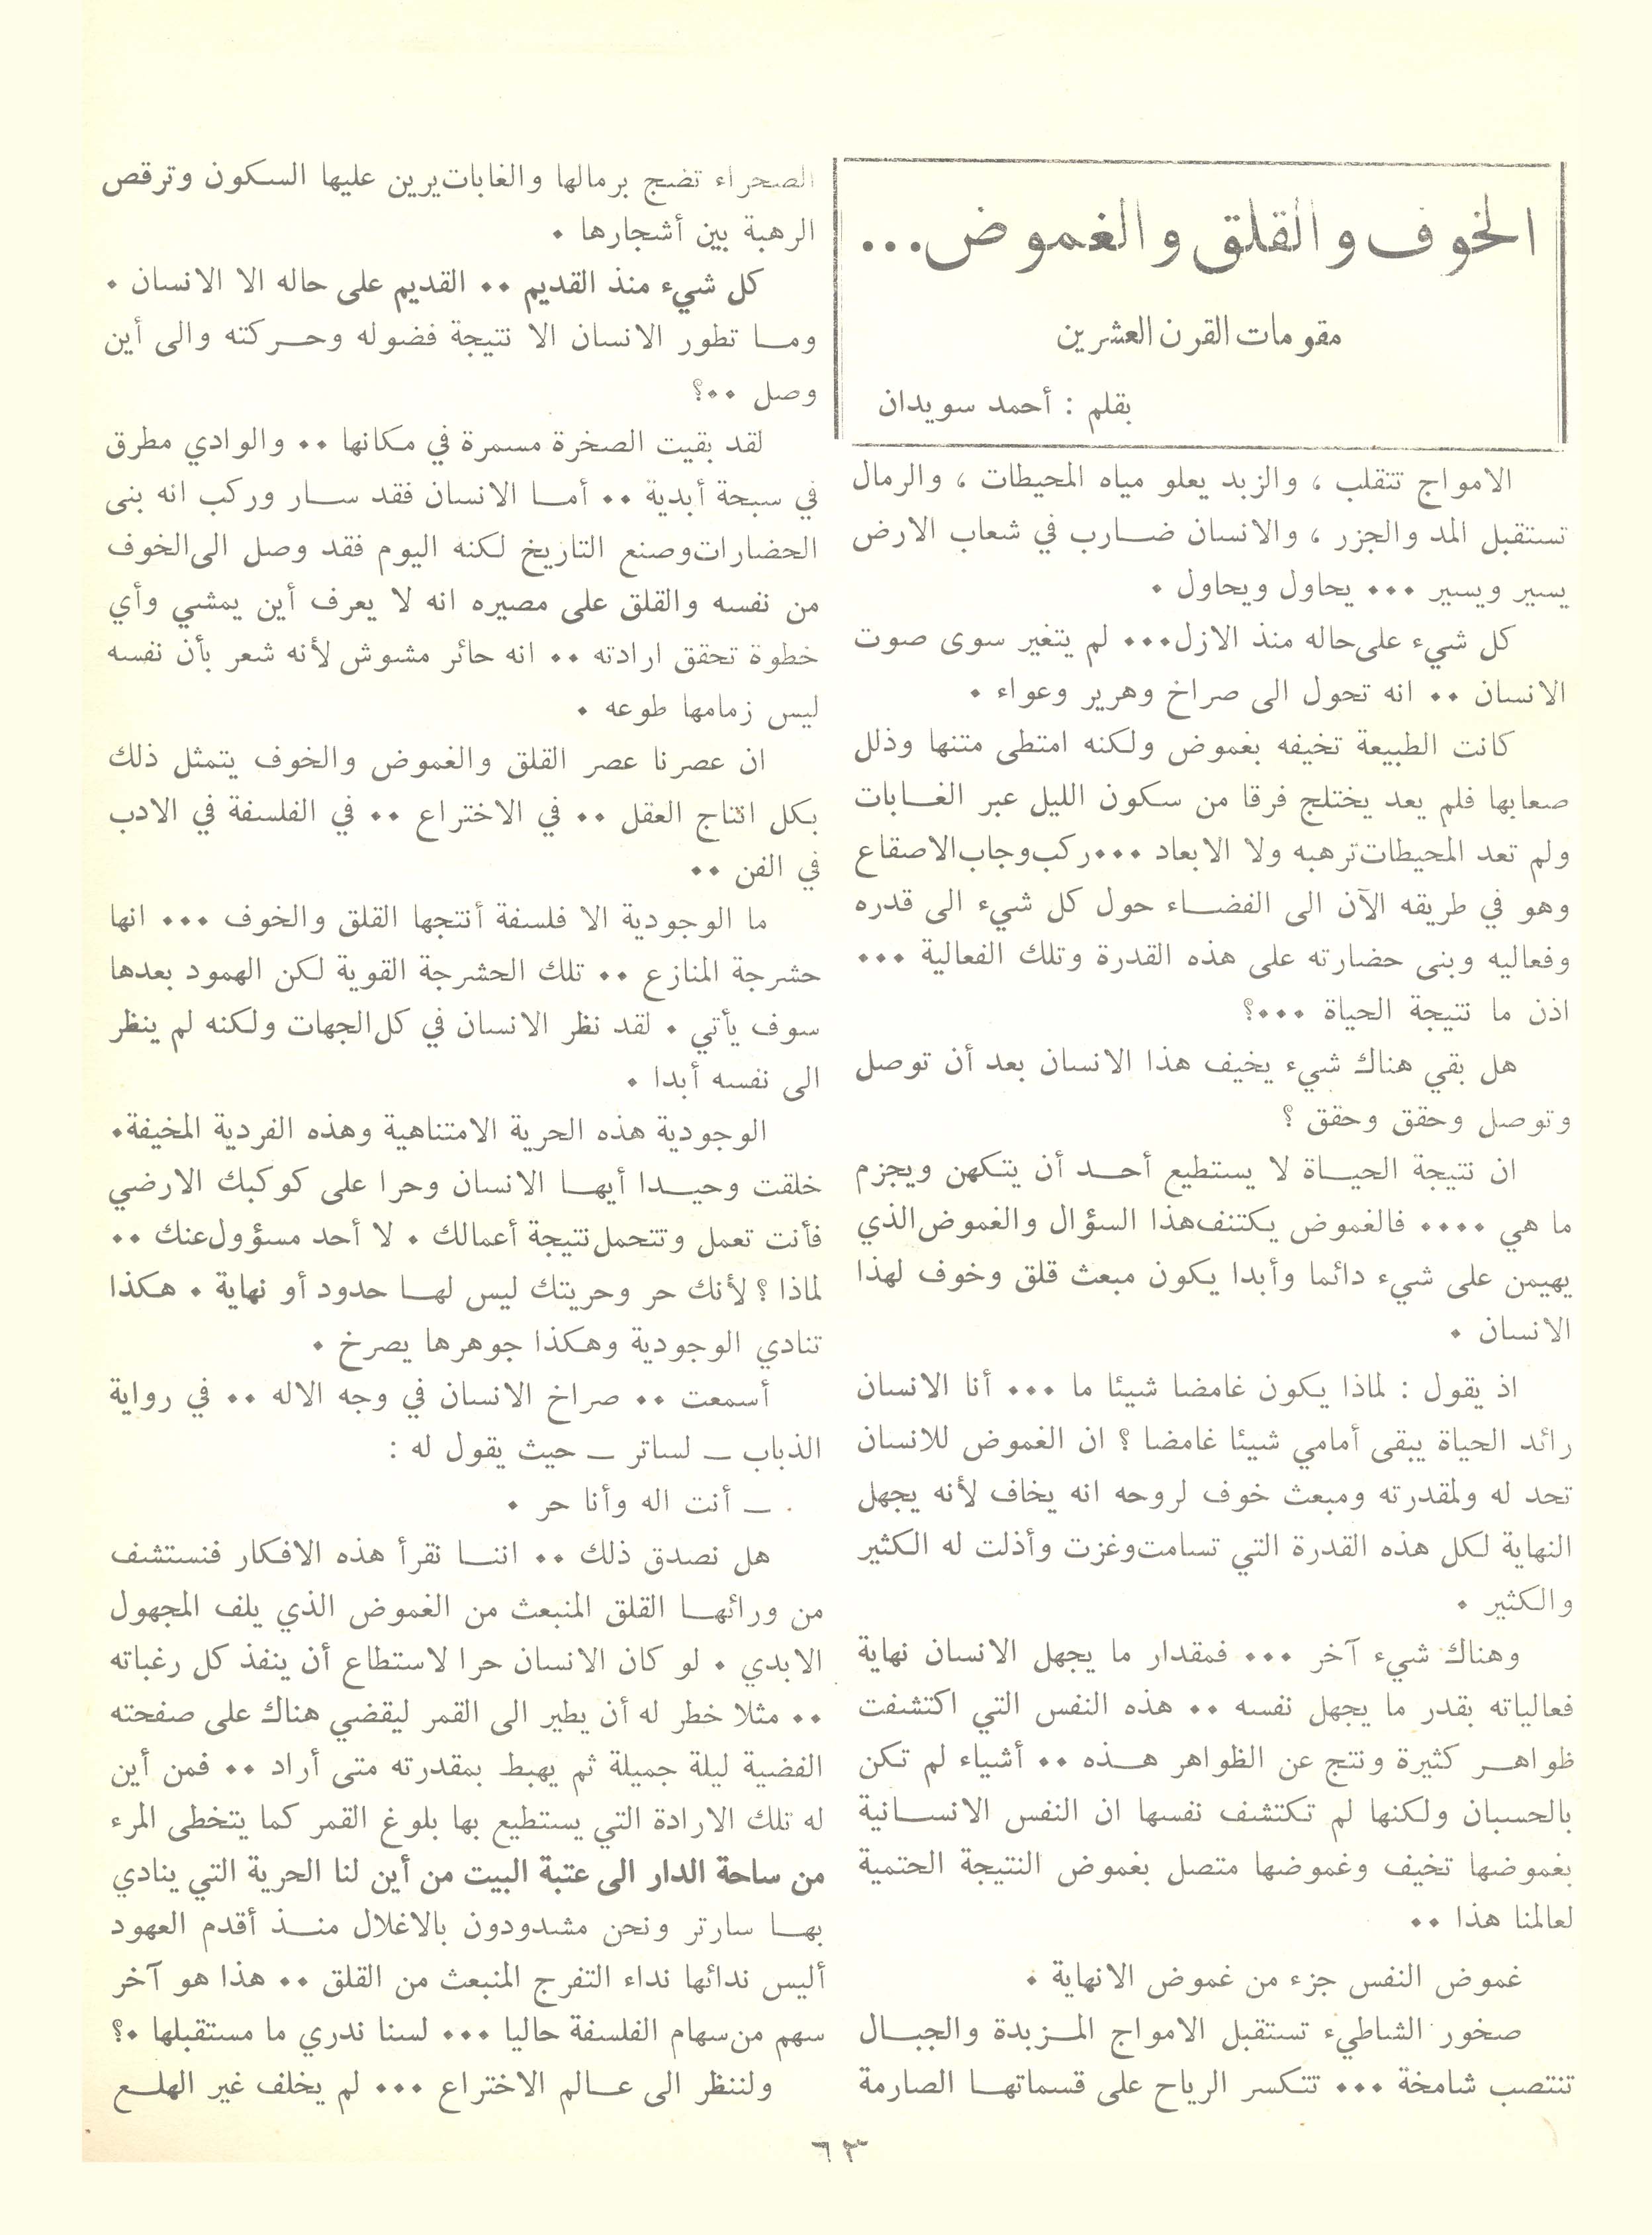 الخوف والقلق والغموض...
مقومات القرن العشرين
بقلم : أحمد سويدان
الامواج تتقلب ، والزبد يعلو مياه المحيطات ، والرمال
تستقبل المد والجزر ، والانسان ضارب في شعاب الارض
يسير ويسير ... يحاول ويحاول .
كل شيء على حاله منذ الازل... لم يتغير سوى صوت
الانسان .. انه تحول الى صراخ وهرير وعواء .
كانت الطبيعة تخيفه بغموض ولكنه امتطى متنها وذلل
صعابها فلم يعد يختلج فرقا من سكون الليل عبر الغابات
ولم تعد المحيطات ترهبه ولا الابعاد ... ركب وجاب الاصقاع
وهو في طريقه الآن الى الفضاء حول كل شيء الى قدره
وفعاليه وبنى حضارته على هذه القدرة وتلك الفعالية ...
اذن ما نتيجة الحياة ...؟
هل بقي هناك شيء يخيف هذا الانسان بعد أن توصل
وتوصل وحقق وحقق ؟
ان نتيجة الحياة لا يستطيع أحد أن يتكهن ويجزم
ما هي .... فالغموض يكتنف هذا السؤال والغموض الذي
يهيمن على شيء دائما وأبدا يكون مبعث قلق وخوف لهذا
الانسان .
اذ يقول : لماذا يكون غامضا شيئا ما ... أنا الانسان
رائد الحياة يبقى أمامي شيئا غامضا ؟ ان الغموض للانسان
تحد له ولمقدرته ومبعث خوف لروحه انه يخاف لأنه يجهل
النهاية لكل هذه القدرة التي تسامت وغزت وأذلت له الكثير
والكثير .
وهناك شيء آخر ... فمقدار ما يجهل الانسان نهاية
فعالياته بقدر ما يجهل نفسه .. هذه النفس التي اكتشفت
ظواهر كثيرة ونتج عن الظواهر هذه .. أشياء لم تكن
بالحسبان ولكنها لم تكتشف نفسها ان النفس الانسانية
بغموضها تخيف وغموضها متصل بغموض النتيجة الحتمية
لعالمنا هذا ..
غموض النفس جزء من غموض الانهاية .
صخور الشاطيء تستقبل الامواج المزبدة والجبال
تنتصب شامخة ... تتكسر الرياح على قسماتها الصارمة
الصحراء تضج برمالها والغابات يرين عليها السكون وترقص
الرهبة بين أشجارها .
كل شيء منذ القديم .. القديم على حاله الا الانسان .
وما تطور الانسان الا نتيجة فضوله وحركته والى أين
وصل ..؟
لقد بقيت الصخرة مسمرة في مكانها .. والوادي مطرق
في سبحة أبدية .. أما الانسان فقد سار وركب انه بنى
الحضارات وصنع التاريخ لكنه اليوم فقد وصل الى الخوف
من نفسه والقلق على مصيره انه لا يعرف أين يمشي وأي
خطوة تحقق ارادته .. انه حائر مشوش لأنه شعر بأن نفسه
ليس زمامها طوعه .
ان عصرنا عصر القلق والغموض والخوف يتمثل ذلك
بكل انتاج العقل .. في الاختراع .. في الفلسفة في الادب
في الفن ..
ما الوجودية الا فلسفة أنتجها القلق والخوف ... انها
حشرجة المنازع .. تلك الحشرجة القوية لكن الهمود بعدها
سوف يأتي . لقد نظر الانسان في كل الجهات ولكنه لم ينظر
الى نفسه أبدا .
الوجودية هذه الحرية الامتناهية وهذه الفردية المخيفة.
خلقت وحيدا أيها الانسان وحرا على كوكبك الارضي
فأنت تعمل وتتحمل نتيجة أعمالك . لا أحد مسؤول عنك ..
لماذا ؟ لأنك حر وحريتك ليس لها حدود أو نهاية . هكذا
تنادي الوجودية وهكذا جوهرها يصرخ .
أسمعت .. صراخ الانسان في وجه الاله .. في رواية
الذباب ـ لساتر ـ حيث يقول له :
ـ أنت اله وأنا حر .
هل نصدق ذلك .. اننا نقرأ هذه الافكار فنستشف
من ورائها القلق المنبعث من الغموض الذي يلف المجهول
الابدي . لو كان الانسان حرا لاستطاع أن ينفذ كل رغباته
.. مثلا خطر له أن يطير الى القمر ليقضي هناك على صفحته
الفضية ليلة جميلة ثم يهبط بمقدرته متى أراد .. فمن أين
له تلك الارادة التي يستطيع بها بلوغ القمر كما يتخطى المرء
من ساحة الدار الى عتبة البيت من أين لنا الحرية التي ينادي
بها سارتر ونحن مشدودون بالاغلال منذ أقدم العهود
أليس ندائها نداء التفرج المنبعث من القلق .. هذا هو آخر
سهم من سهام الفلسفة حاليا ... لسنا ندري ما مستقبلها .؟
ولننظر الى عالم الاختراع ... لم يخلف غير الهلع
٦٣